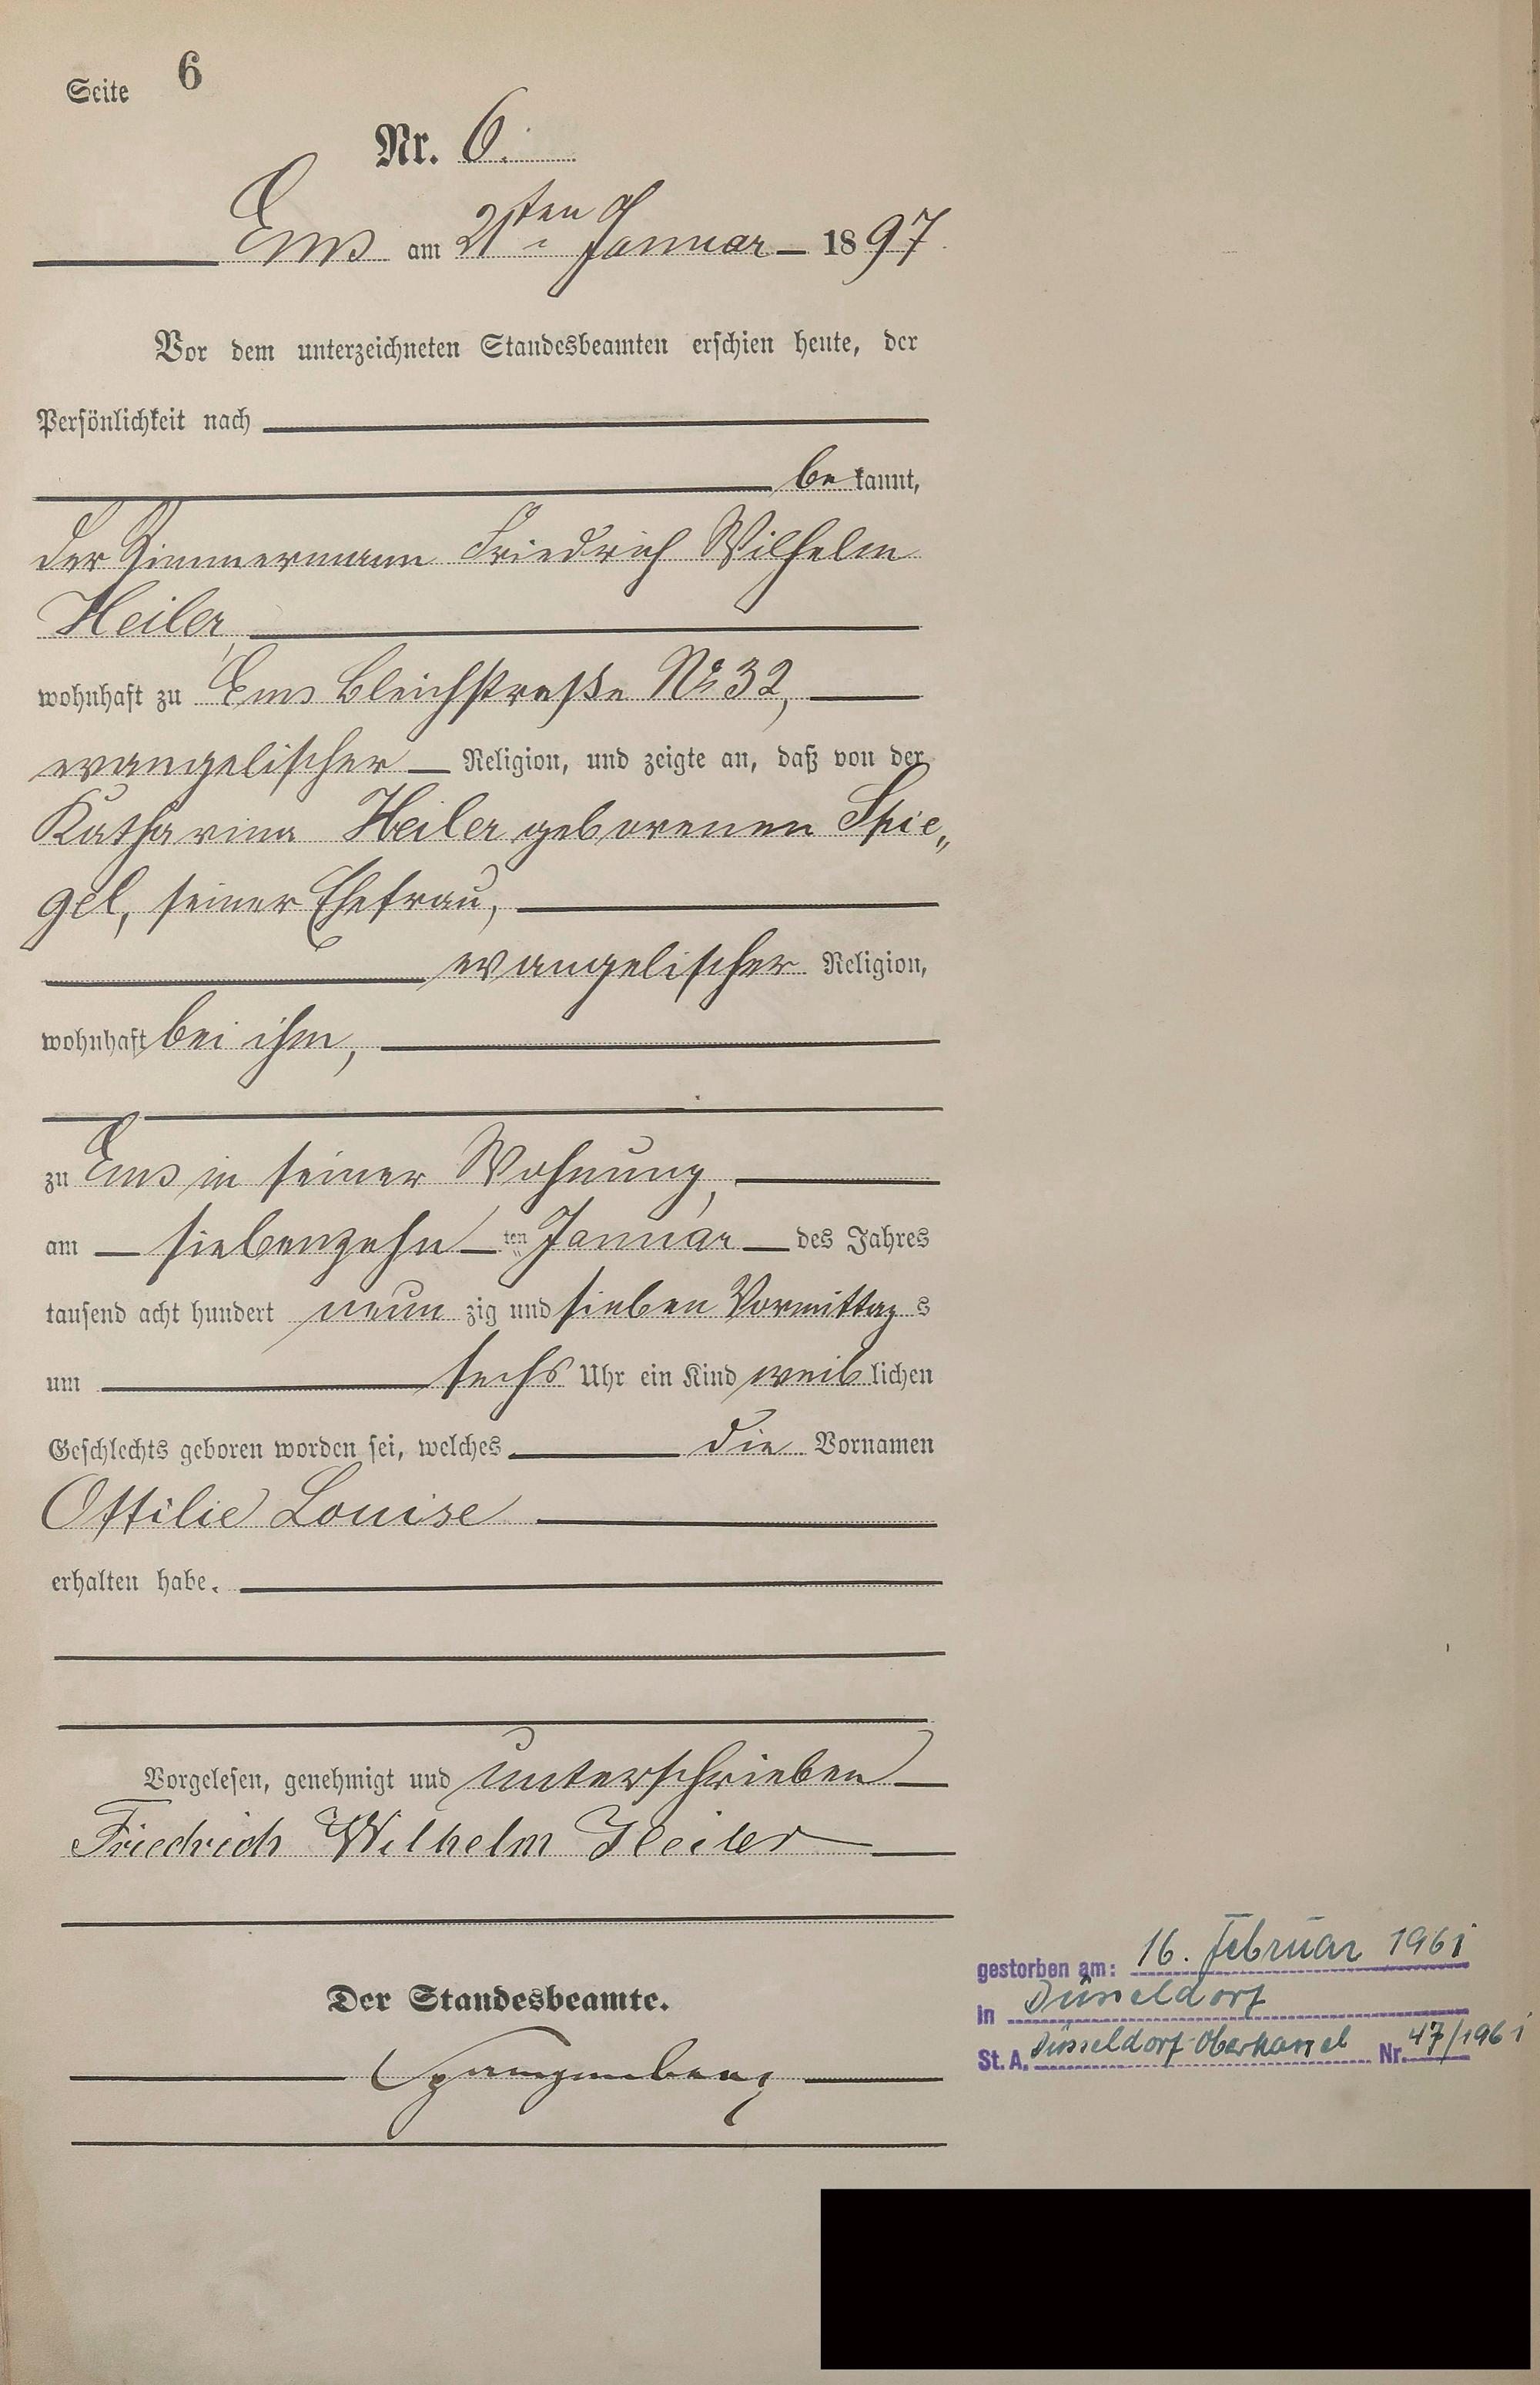 Seite 6
Nr. 6.
Ems am 21ten Januar 1897.
Vor dem unterzeichneten Standesbeamten erschien heute, der
Persönlichkeit nach
bekannt,
der Zimmermann Friedrich Wilhelm
Heiler,
wohnhaft zu Ems Bleichstraße No 32,
evangelischer Religion, und zeigte an, daß von der
Katharina Heiler geborenen Spie„
gel, seiner Ehefrau,
evangelischer Religion,
wohnhaft bei ihm,
zu Ems in seiner Wohnung,
am siebenzehnten Januar des Jahres
tausend acht hundert neunzig und sieben Vormittags
um sechs Uhr ein Kind weiblichen
Geschlechts geboren worden sei, welches die Vornamen
Ottilie Louise
erhalten habe.
Vorgelesen, genehmigt und unterschrieben
Friedrich Wilhelm Heiler
Der Standesbeamte.
Spangenberg
gestorben am: 16. Februar 1961
in Düsseldorf
St. A. Düsseldorf-Oberkassel Nr. 47/1961